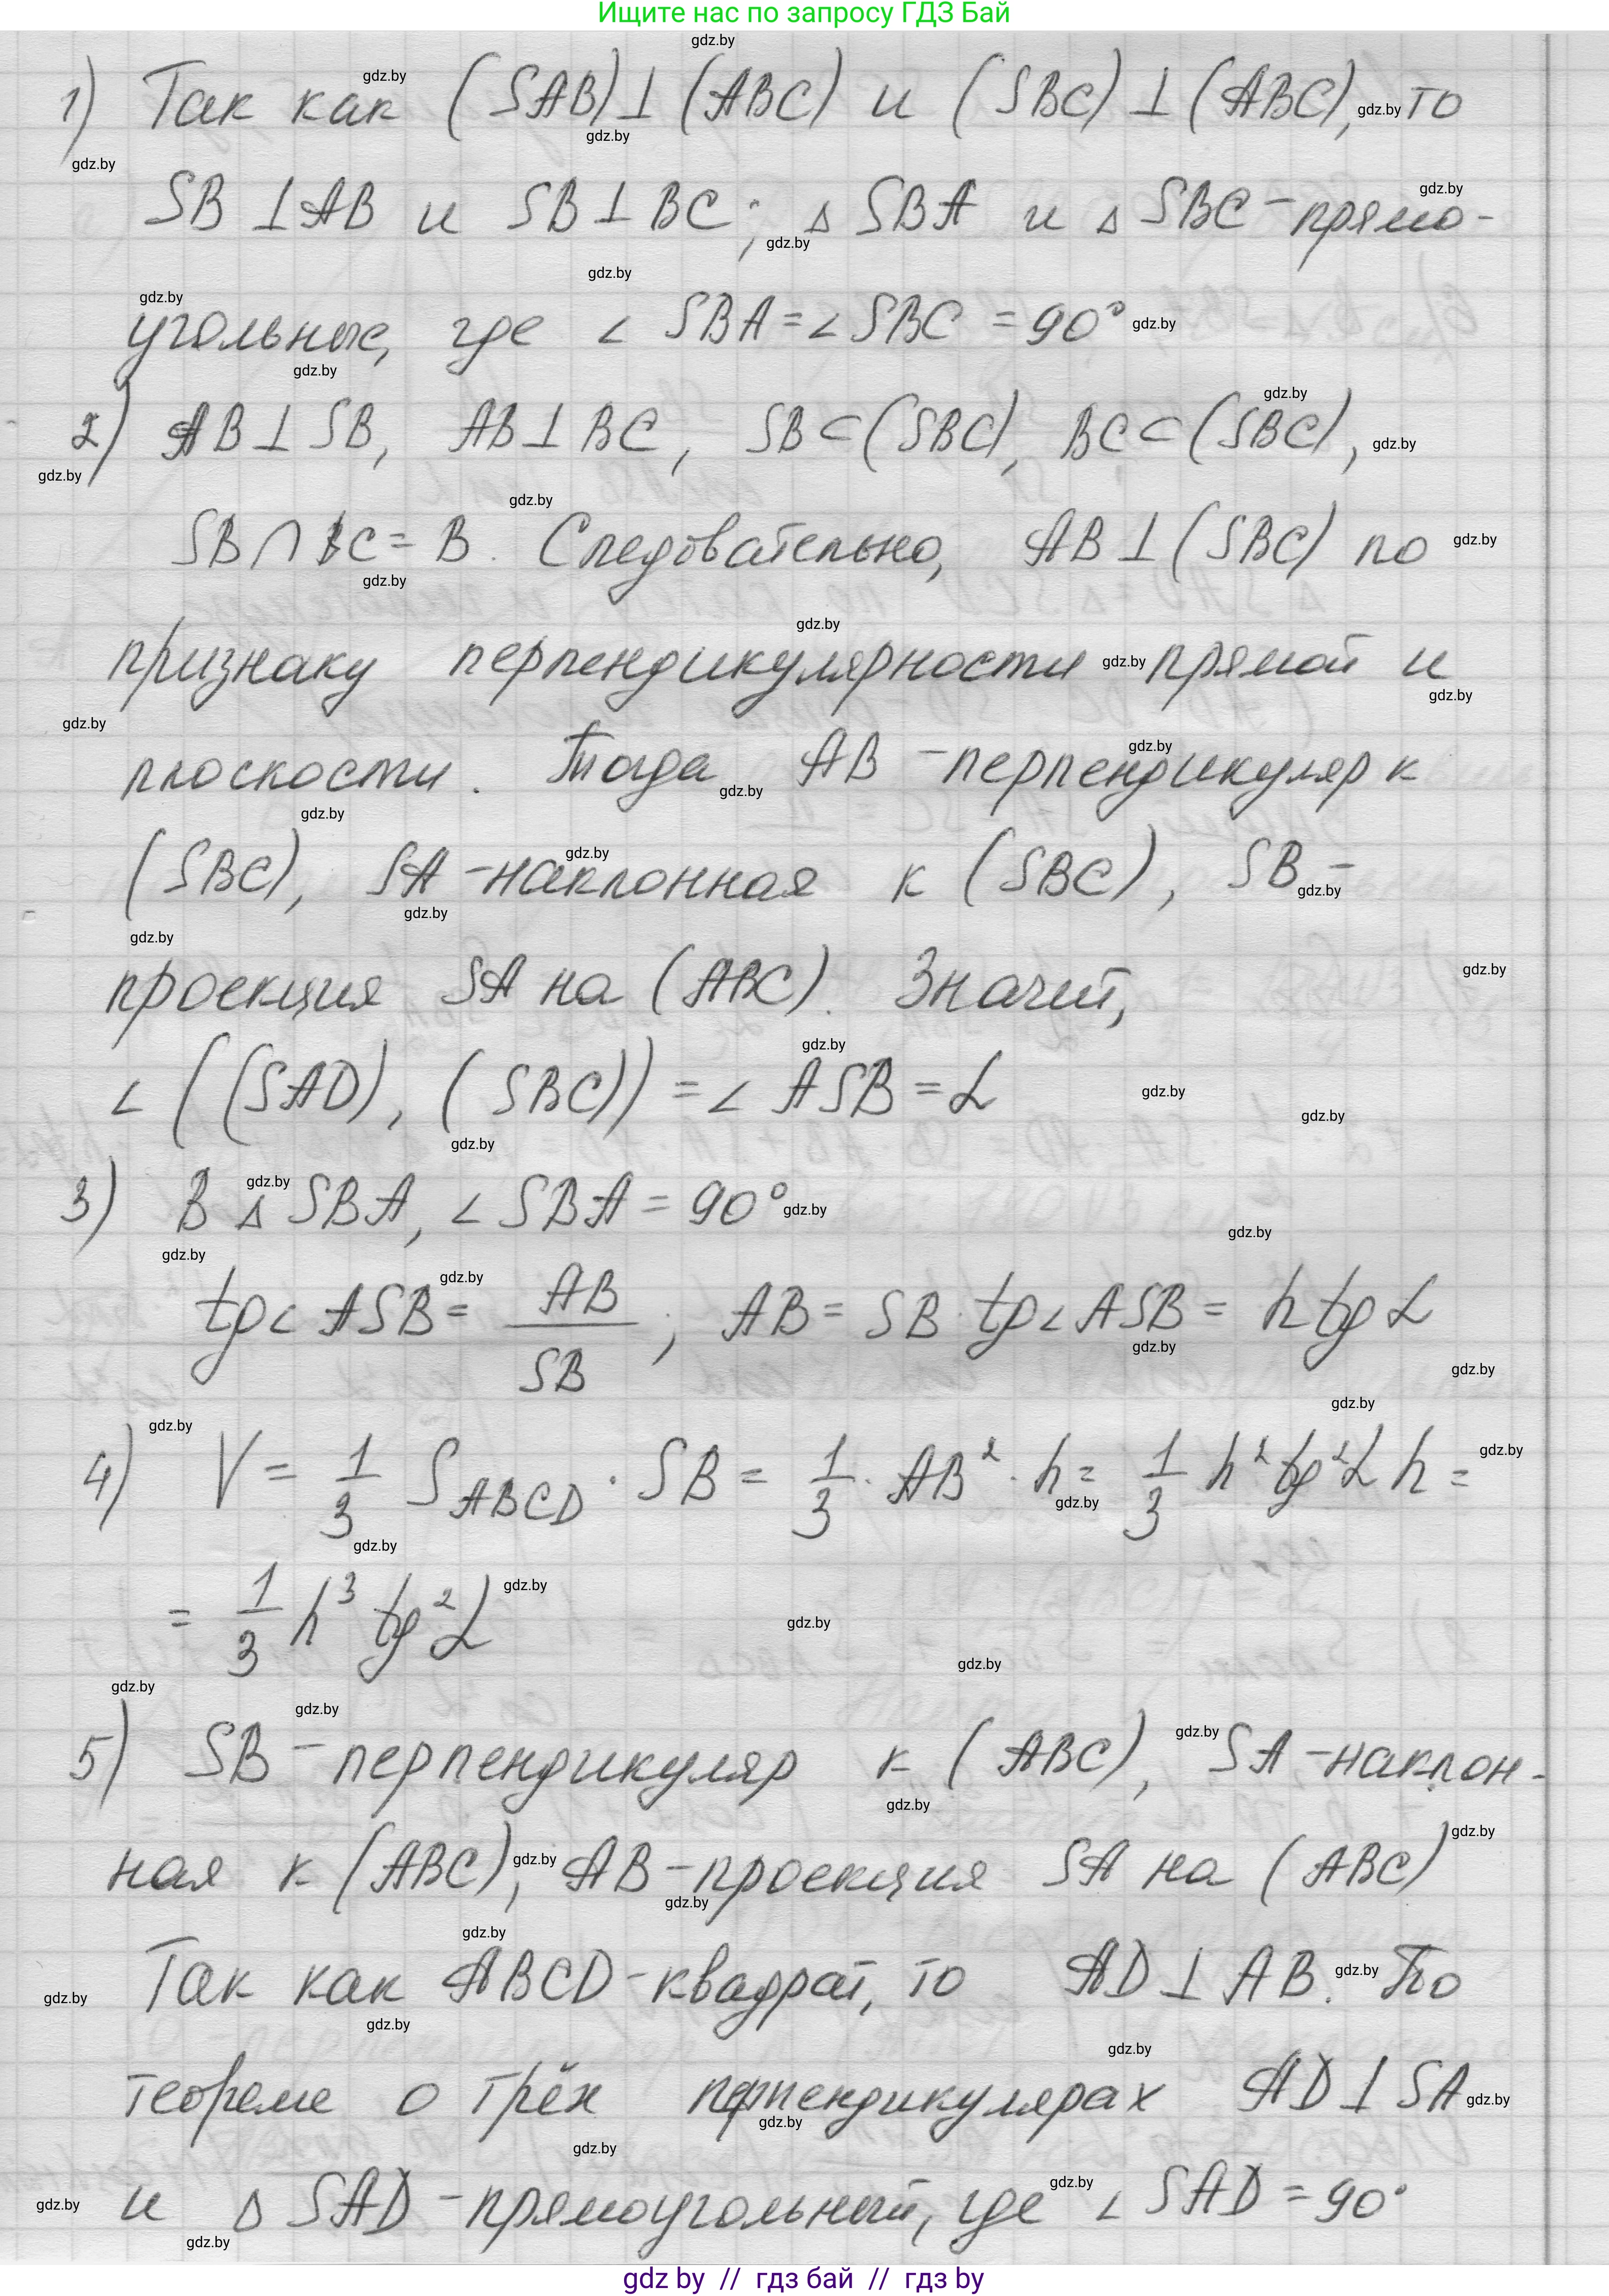 Ищите нас по запросу ГДЗ Бай
1) Так как (SAB)⊥(ABC) и (SBC)⊥(ABC), то
SB⊥AB и SB⊥BC; ▵SBA и ▵SBC-прямо-
угольные, где ∠SBA=∠SBC=90°
2) AB⊥SB, AB⊥BC, SB⊂(SBC), BC⊂(SBC),
SB∩BC=B. Следовательно, AB⊥(SBC) по
признаку перпендикулярности прямой и
плоскости. Тогда AB-перпендикуляр к
(SBC), SA-наклонная к (SBC), SB-
проекция SA на (ABC). Значит,
∠((SAD), (SBC))=∠ASB=α
3) В ▵SBA, ∠SBA=90°
tg∠ASB= AB/SB; AB=SB·tg∠ASB=h tg α
4) V= 1/3 S_ABCD·SB= 1/3·AB²·h= 1/3 h² tg²α h=
= 1/3 h³ tg²α
5) SB-перпендикуляр к (ABC), SA-наклон-
ная к (ABC), AB-проекция SA на (ABC)
Так как ABCD-квадрат, то AD⊥AB. По
теореме о трёх перпендикулярах AD⊥SA
и ▵SAD-прямоугольный, где ∠SAD=90°
gdz by // гдз бай // гдз by